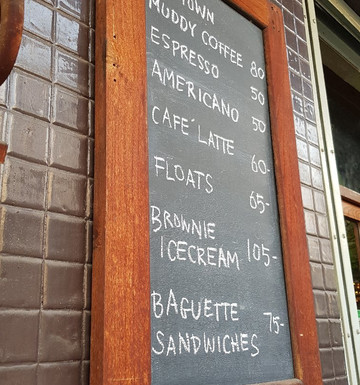 TOWN
MUDDY COFFEE 80
ESPRESSO 50
AMERICANO 50
CAFE´ LATTE 60-
FLOATS 65-
BROWNIE
ICECREAM 105-
BAGUETTE 75-
SANDWICHES